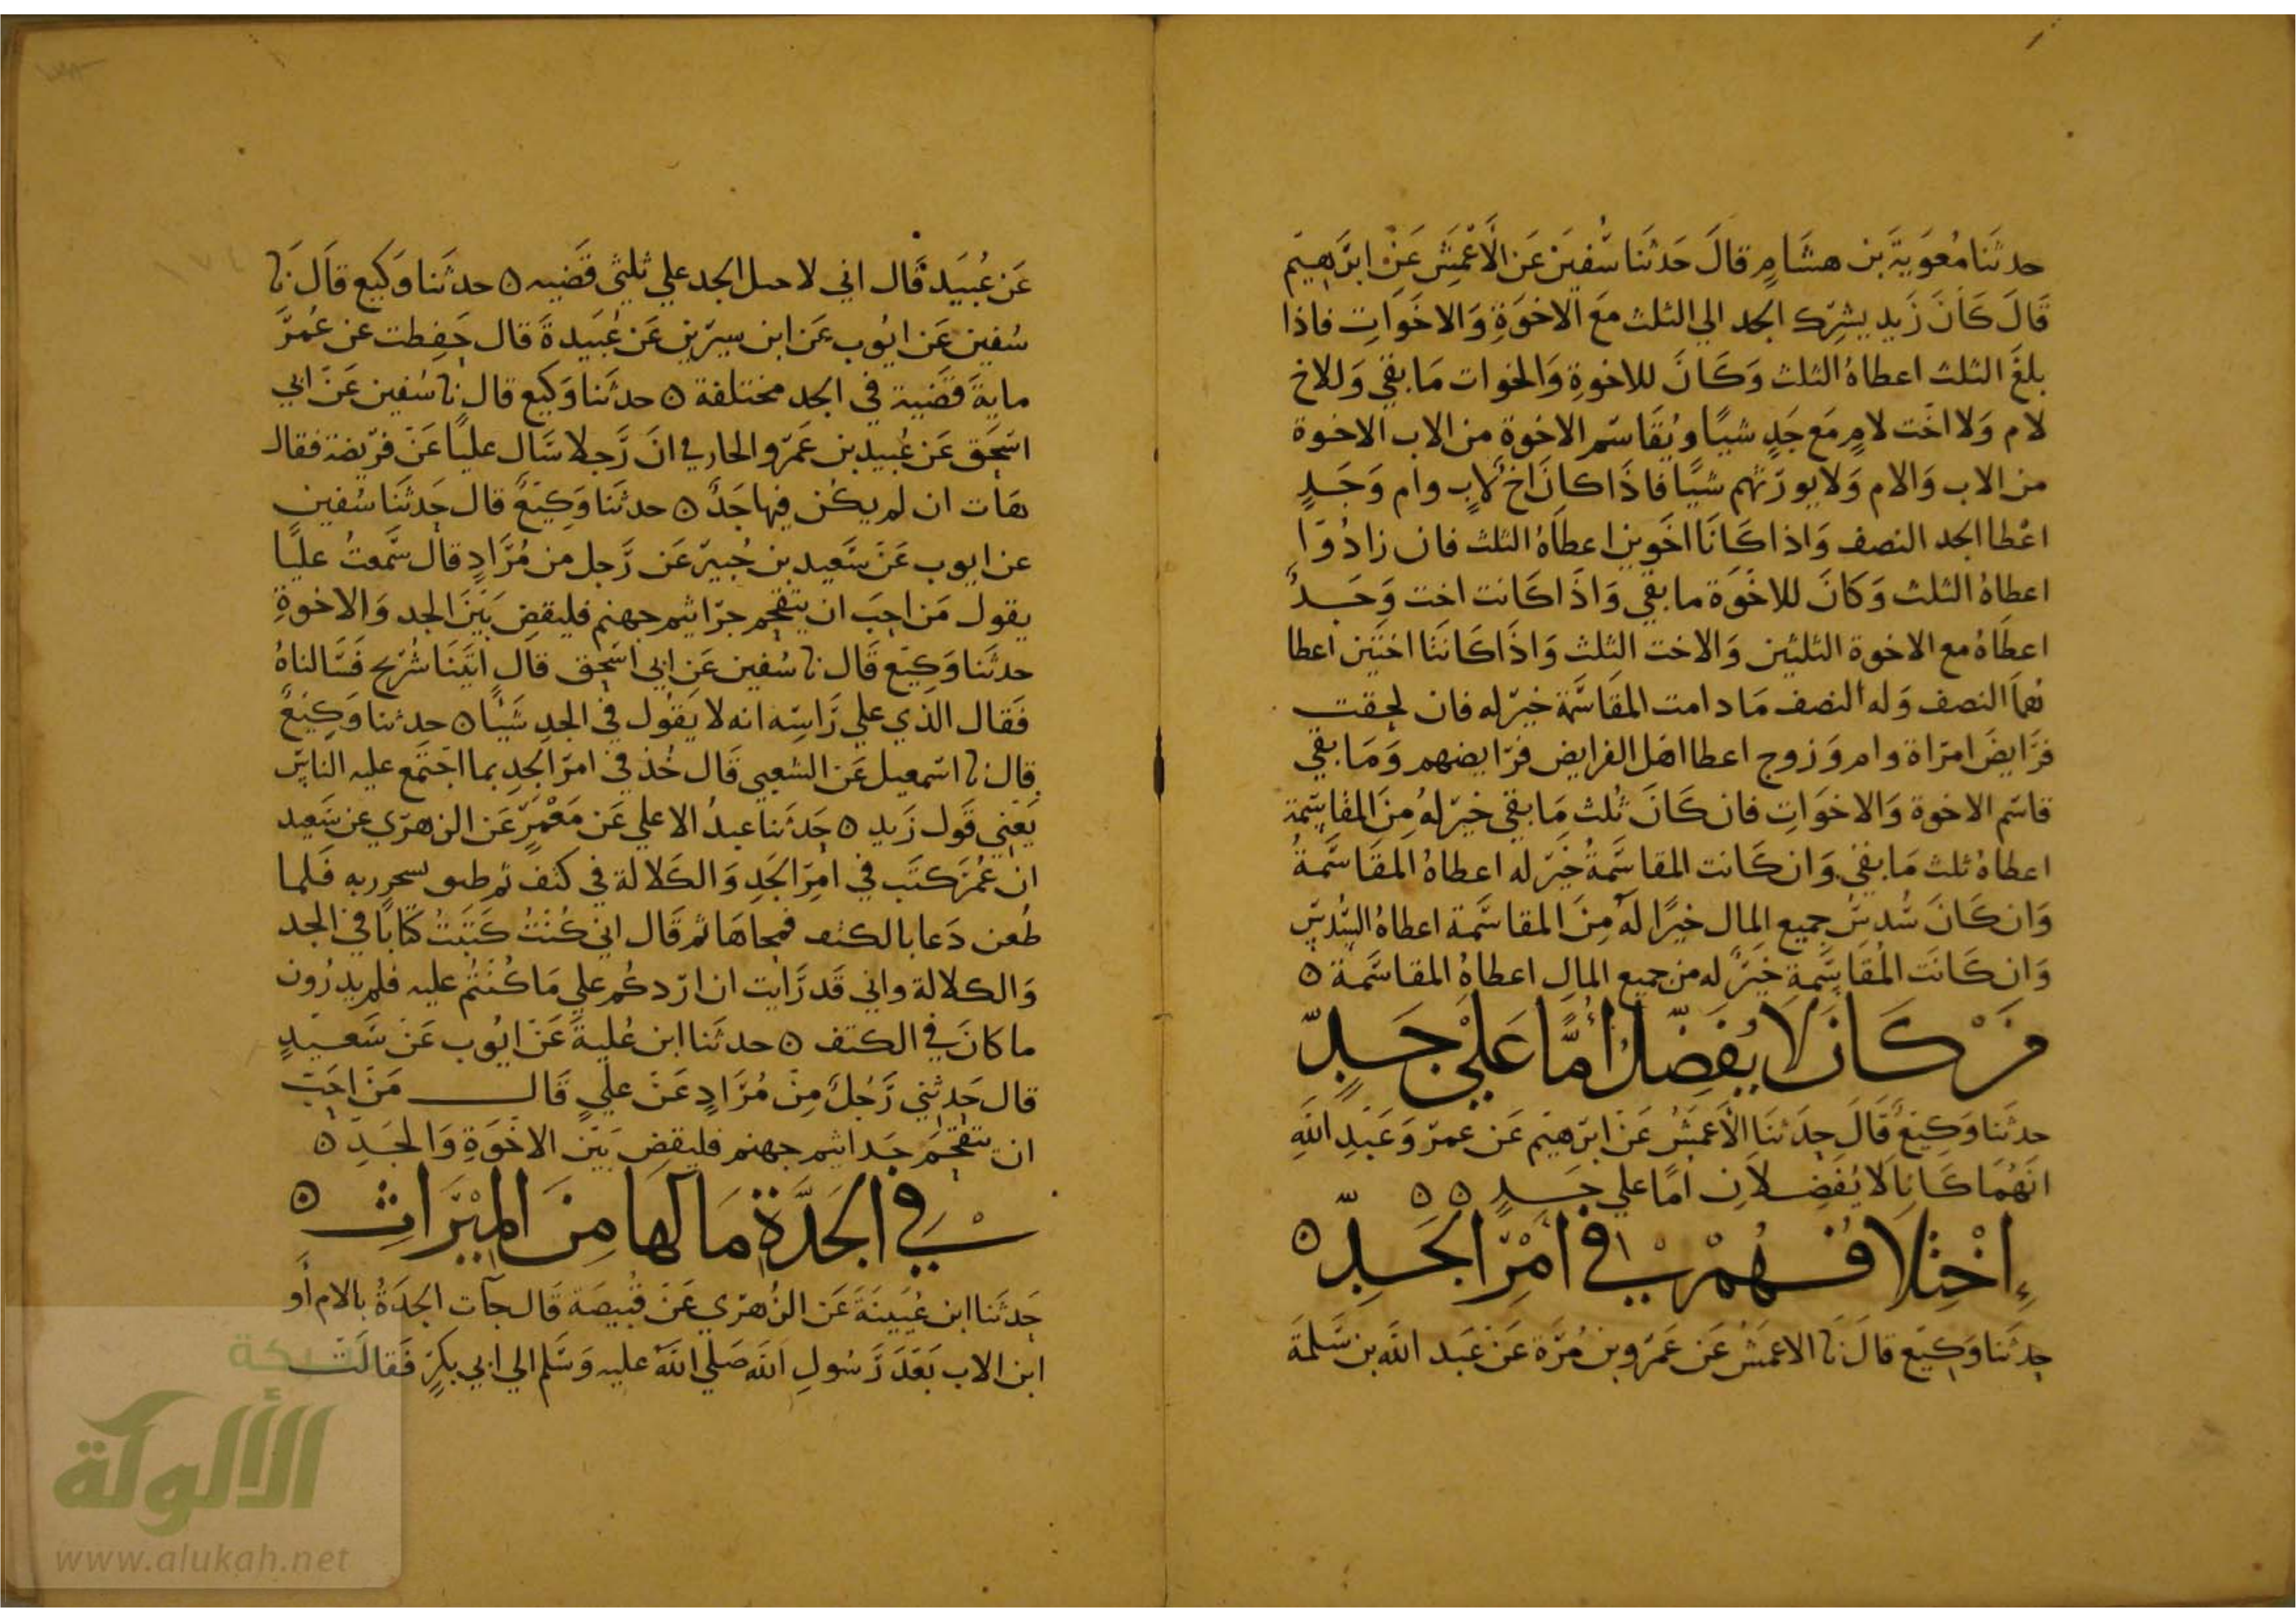 حدثَنا مُعَوَيةَ بن هشَامٍ قالَ حَدثنَا سُفيَن عَن الأعْمَشِ عَنْ ابرَهِيمَ
قَالَ كَانَ زَيد يشرِك الجد الي الثلث مَع الاخوَةِ وَالاخوَاتِ فاذا
بلغَ الثلث اعطاهُ الثلث وَكَانَ للاخوةِ وَالخوات مَا بقي وَللاخ
لام وَلا اخَت لامٍ مَع جَدٍ شيًا ويُقَاسم الاخوة من الاب الاخوة
من الاب وَالام وَلا يورَثهم شيًا فاذَا كان اخ لابٍ وام وَجَدٍ
اعْطا الجد النصف وَاذا كَانَا اخَوين اعطاهُ الثلث فان زادُوا
اعطاهُ الثلث وَكانَ للاخوَة ما بقي وَاذَا كَانت اخت وَجَدٌ
اعطَاهُ مع الاخوة الثلثين وَالاخت الثلث وَاذَا كَانَتا اختَين اعطا
هُما النصف وَله النصف مَا دامت المقَاسَمة خيرَ له فان لحقت
فرَايضَ امرَاة وام وَزوج اعطا اهَل الفرايض فرَايضهم وَمَا بقي
قاسَم الاخوة وَالاخوَاتِ فان كَانَ ثُلث مَا بقي خيرَ لهُ مِنَ المقاسَمة
اعطاهُ ثلث مَا بقي وَان كَانت المقاسَمةُ خَيرَ له اعطاهُ المقَاسَمةُ
وَان كَانَ سُدسَ جميع المال خيرًا لهُ مِنَ المقاسَمة اعطاهُ السُدسَ
وَان كَانَت المُقاسَمةِ خَيرٌ له من جميع المال اعطاهُ المقاسَمة ٥
مَن كَانَ لَا يُفَضِلُ أُمًّا عَلَيْ جَدٍّ
حدثَنا وَكِيعٌ قَالَ حدَثنَا الأَعمَشُ عَنَ ابرَهيَم عَن عمرَ وَعَبدِ اللَّهِ
انَهُمَا كَانا لا يُفَضِلانِ أمًا علي جَدٍ ٥ ٥
إِخْتِلَافُهُمْ فِي أَمْرِ الجَدِّ ٥
حدثَنا وَكِيَع قالَ نَا الاعمَشُ عَن عَمرَو بن مُرَّة عَن عَبد اللَّه بن سَلمَةَ
عَن عُبَيَد قَال اني لا الجد علي ثليثي قَضيه ٥ حدثَنا وَكِيع قالَ نَا
سُفين عَن ايُوب عَن ابن سيرَين عَن عُبَيدةَ قال حَفِظت عن عُمرَ
مايَةَ قَضَية في الجد مختلفة ٥ حدثَنا وَكِيع قال نا سُفين عَن ابي
اسحَق عَن عُبيدِ بن عَمرَو الخارفي انَ رَجلا سَال عليًا عَن فرَيضة فقال
هَات ان لم يكُن فيها جَدٌ ٥ حدثَنا وَكِيَعٌ قال حَدثَنَا سُفين
عن ايوب عَن سَعيد بن جُبيرَ عَن رَجل من مُرَادٍ قال سَمعتُ عليًا
يقول مَن احَبَ ان يتقحم جرَاثيم جهنم فليقضِ بَيَنَ الجد وَالاخوةِ
حدثَنا وَكِيَع قَال نا سُفين عَن ابي اسَحق قال اتَينَا شُرَيح فَسَالناهُ
فَقال الذي علي رَاسِه انه لا يَقُول في الجدِ شَيًا ٥ حدثنا وَكِيَعٌ
قال نا اسَمعيل عَن الشعبي قَال خُذ في امرَ الجدِ بما اجَتمَع عليه الناسَ
يَعني قَول زَيد ٥ حَدثَنا عَبدُ الاعلي عَن مَعْمَرٍ عَن الزهرَي عن سَعيد
ان عُمرَ كتَب في امِرَ الجَدِ وَالكَلالة في كتف ثم طفق يستخير ربه فَلما
طُعن دَعا بالكتف فمحاهَا ثم قَال اني كُنَتُ كتَبَتُ كتابًا في الجد
وَالكلالة واني قَد رَايت ان ارَدكم علي مَا كُنتُم عليه فلم يدرُون
ما كانَ في الكتف ٥ حدثَنا ابن عُليةَ عَن ايُوب عَن سَعيدٍ
قال حَدثني رَجُلٌ مِن مُرَادٍ عَن عليٍ قَال مَن احَبَ
ان يتقحَم جَراثيم جهنم فليقضِ بَيَن الاخوَةِ وَالجَدِ ٥
فِي الجَدَّةِ مَا لَهَا مِنَ المِيْرَاثِ ٥
حَدثَنا ابن عُيَينَةَ عَن الزُهرَي عَن قبُيصَة قَال جآت الجدَةُ بالام أَو
ابن الاب بَعَدَ رَسُولِ اللَّه صَلي اللَّه عليه وَسَلم الي ابي بكرٍ فَقالَت
شبكة
الألوكة
www.alukah.net